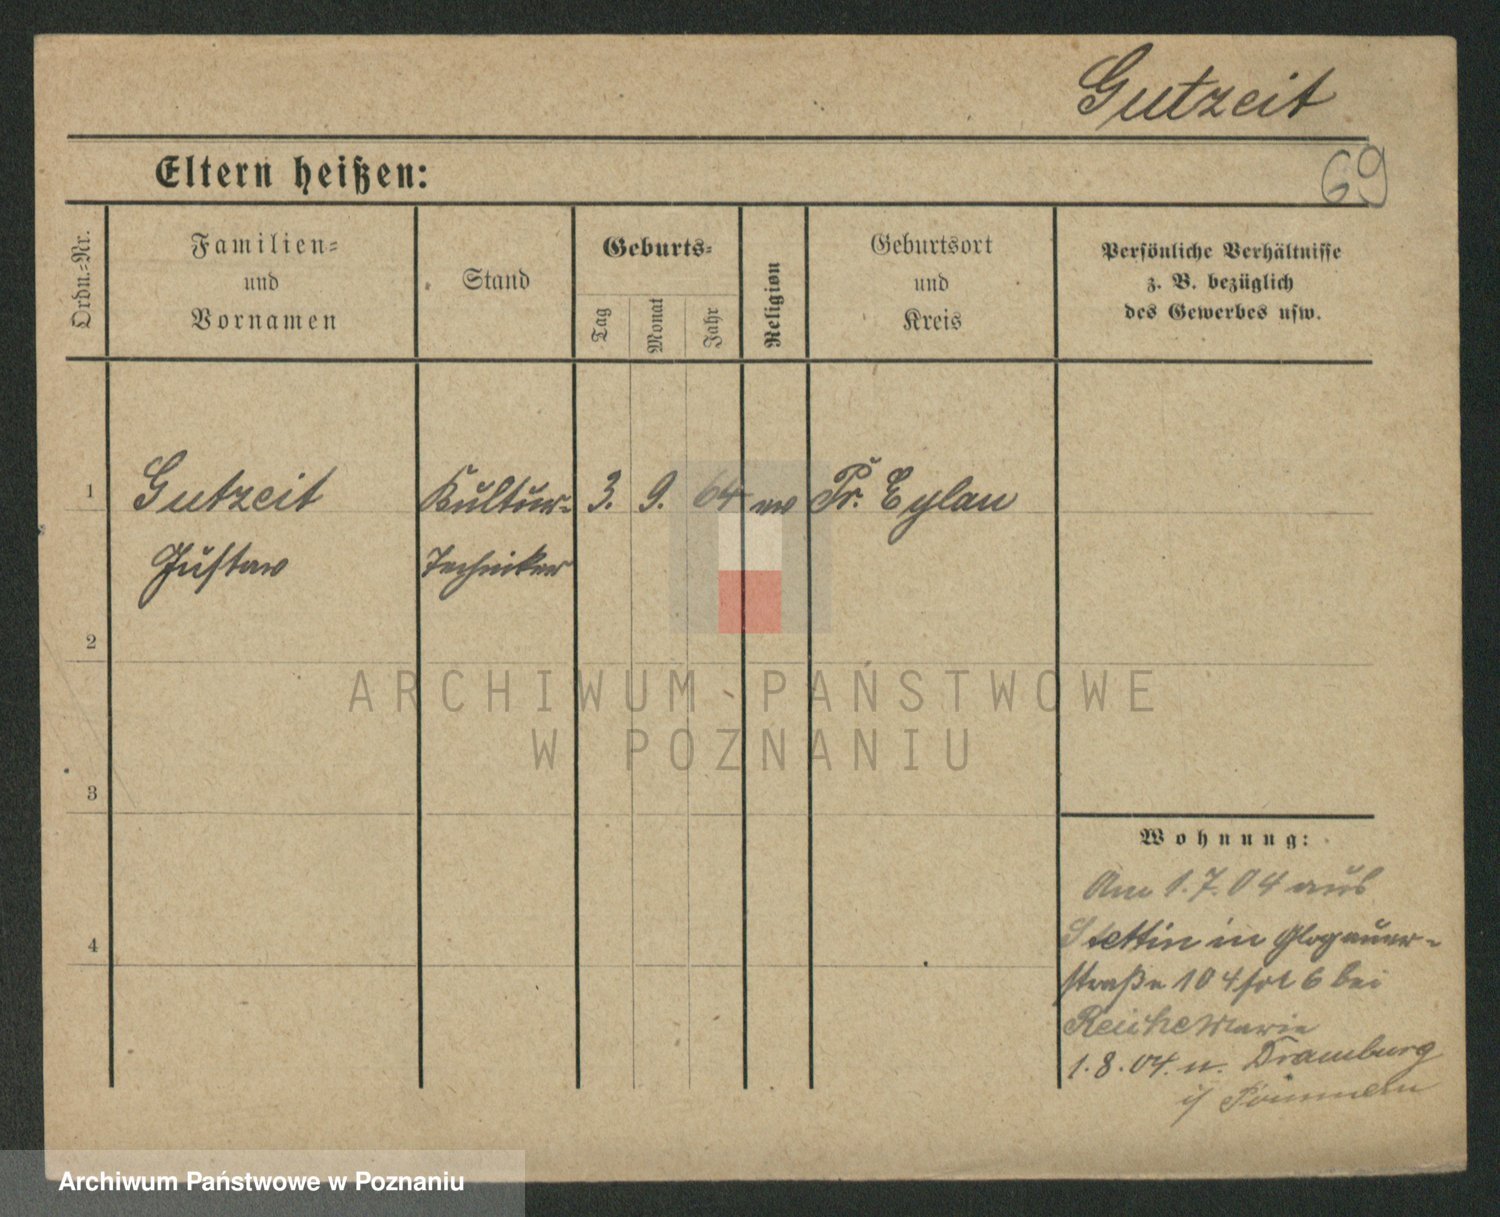 Gutzeit
69
Eltern heißen:
Ordn.=Nr.
Familien=
und
Vornamen
Stand
Geburts=
Tag
Monat
Jahr
Religion
Geburtsort
und
Kreis
Persönliche Verhältnisse
z. B. bezüglich
des Gewerbes usw.
1
Gutzeit
Kultur-
3.
9.
64
ev
Pr. Eylau
Gustav
Techniker
2
ARCHIWUM PAŃSTWOWE
W POZNANIU
3
Wohnung:
Am 1.7.04 aus
Stettin in Glogauer-
4
straße 104 6 bei
Reiche Marie
1.8.04. n. Dramburg
i/ Pommern
Archiwum Państwowe w Poznaniu